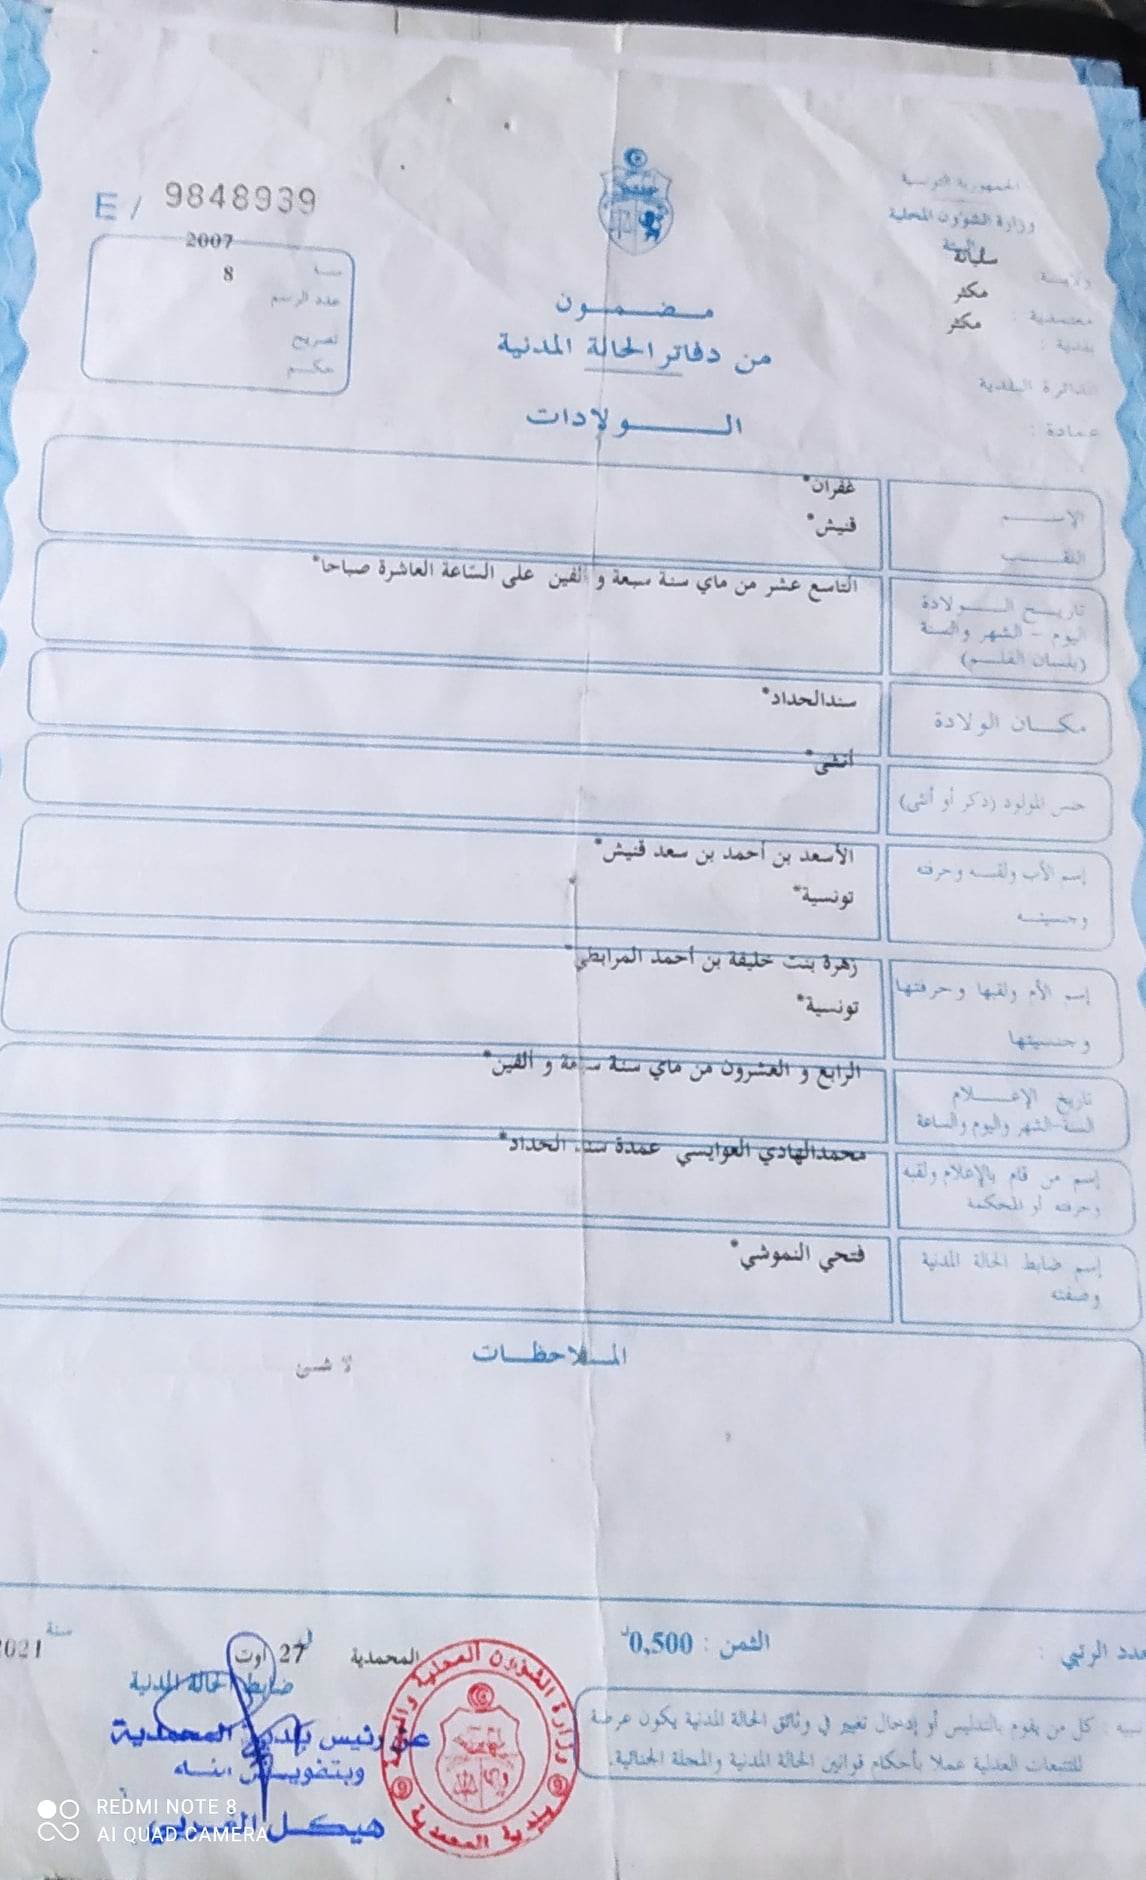 الجمهورية التونسية
وزارة الشؤون المحلية
والبيئة
ولايـــة : سليانة
معتمدية : مكثر
بلدية : مكثر
الدائرة البلدية
عمادة :
E / 9848939
سنـة 2007
عدد الرسم 8
تصريح
حكـم
مـــضـــمـــون
من دفاتر الحالة المدنية
الــــولادات
الإســــم غفران*
اللقـــب قنيش*
تاريـــخ الــــولادة
اليوم - الشهر والسنة
(بلسان القلــم)
التاسع عشر من ماي سنة سبعة و الفين على الساعة العاشرة صباحا*
مكـــان الولادة سندالحداد*
جنس المولود (ذكر أو أنثى) أنثى*
إسم الأب ولقبـــه وحرفته
وجنسيتـــه
الأسعد بن أحمد بن سعد قنيش*
تونسية*
إسم الأم ولقبها وحرفتها
وجنسيتها
زهرة بنت خليفة بن أحمد المرابطي*
تونسية*
تاريخ الإعـــلام
السنة-الشهر واليوم والساعة
الرابع و العشرون من ماي سنة سبعة و الفين*
إسم من قام بالإعلام ولقبه
وحرفته أو المحكمة
محمدالهادي العوايسي عمدة سند الحداد*
إسم ضابط الحالة المدنية
وصفته
فتحي النموشي*
المـــلاحظـــات
لا شـئ
عدد الرتبي :
الثمن : 0,500د
المحمدية في 27 اوت سنة 2021
ضابط الحالة المدنية
عن رئيس بلدية المحمدية
وبتفويـــض منـــه
هيكـــل
تنبيه : كل من يقوم بالتدليس أو إدخال تغيير في وثائق الحالة المدنية يكون عرضة
للتتبعات العدلية عملا بأحكام قوانين الحالة المدنية والمجلة الجنائية.
وزارة الشؤون المحلية والبيئة
بلدية المحمدية
REDMI NOTE 8
AI QUAD CAMERA